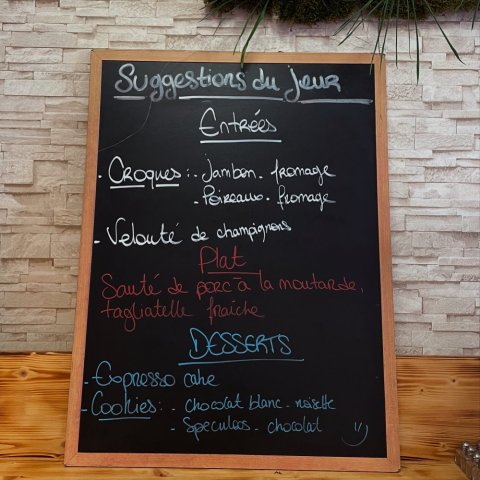 Suggestions du jour
Entrées
- Croques : - Jambon - fromage
- Poireaux - fromage
- Velouté de champignons
Plat
Sauté de porc à la moutarde,
tagliatelle fraîche
DESSERTS
- Expresso cake
- Cookies : - chocolat blanc - noisette
- Speculoos - chocolat